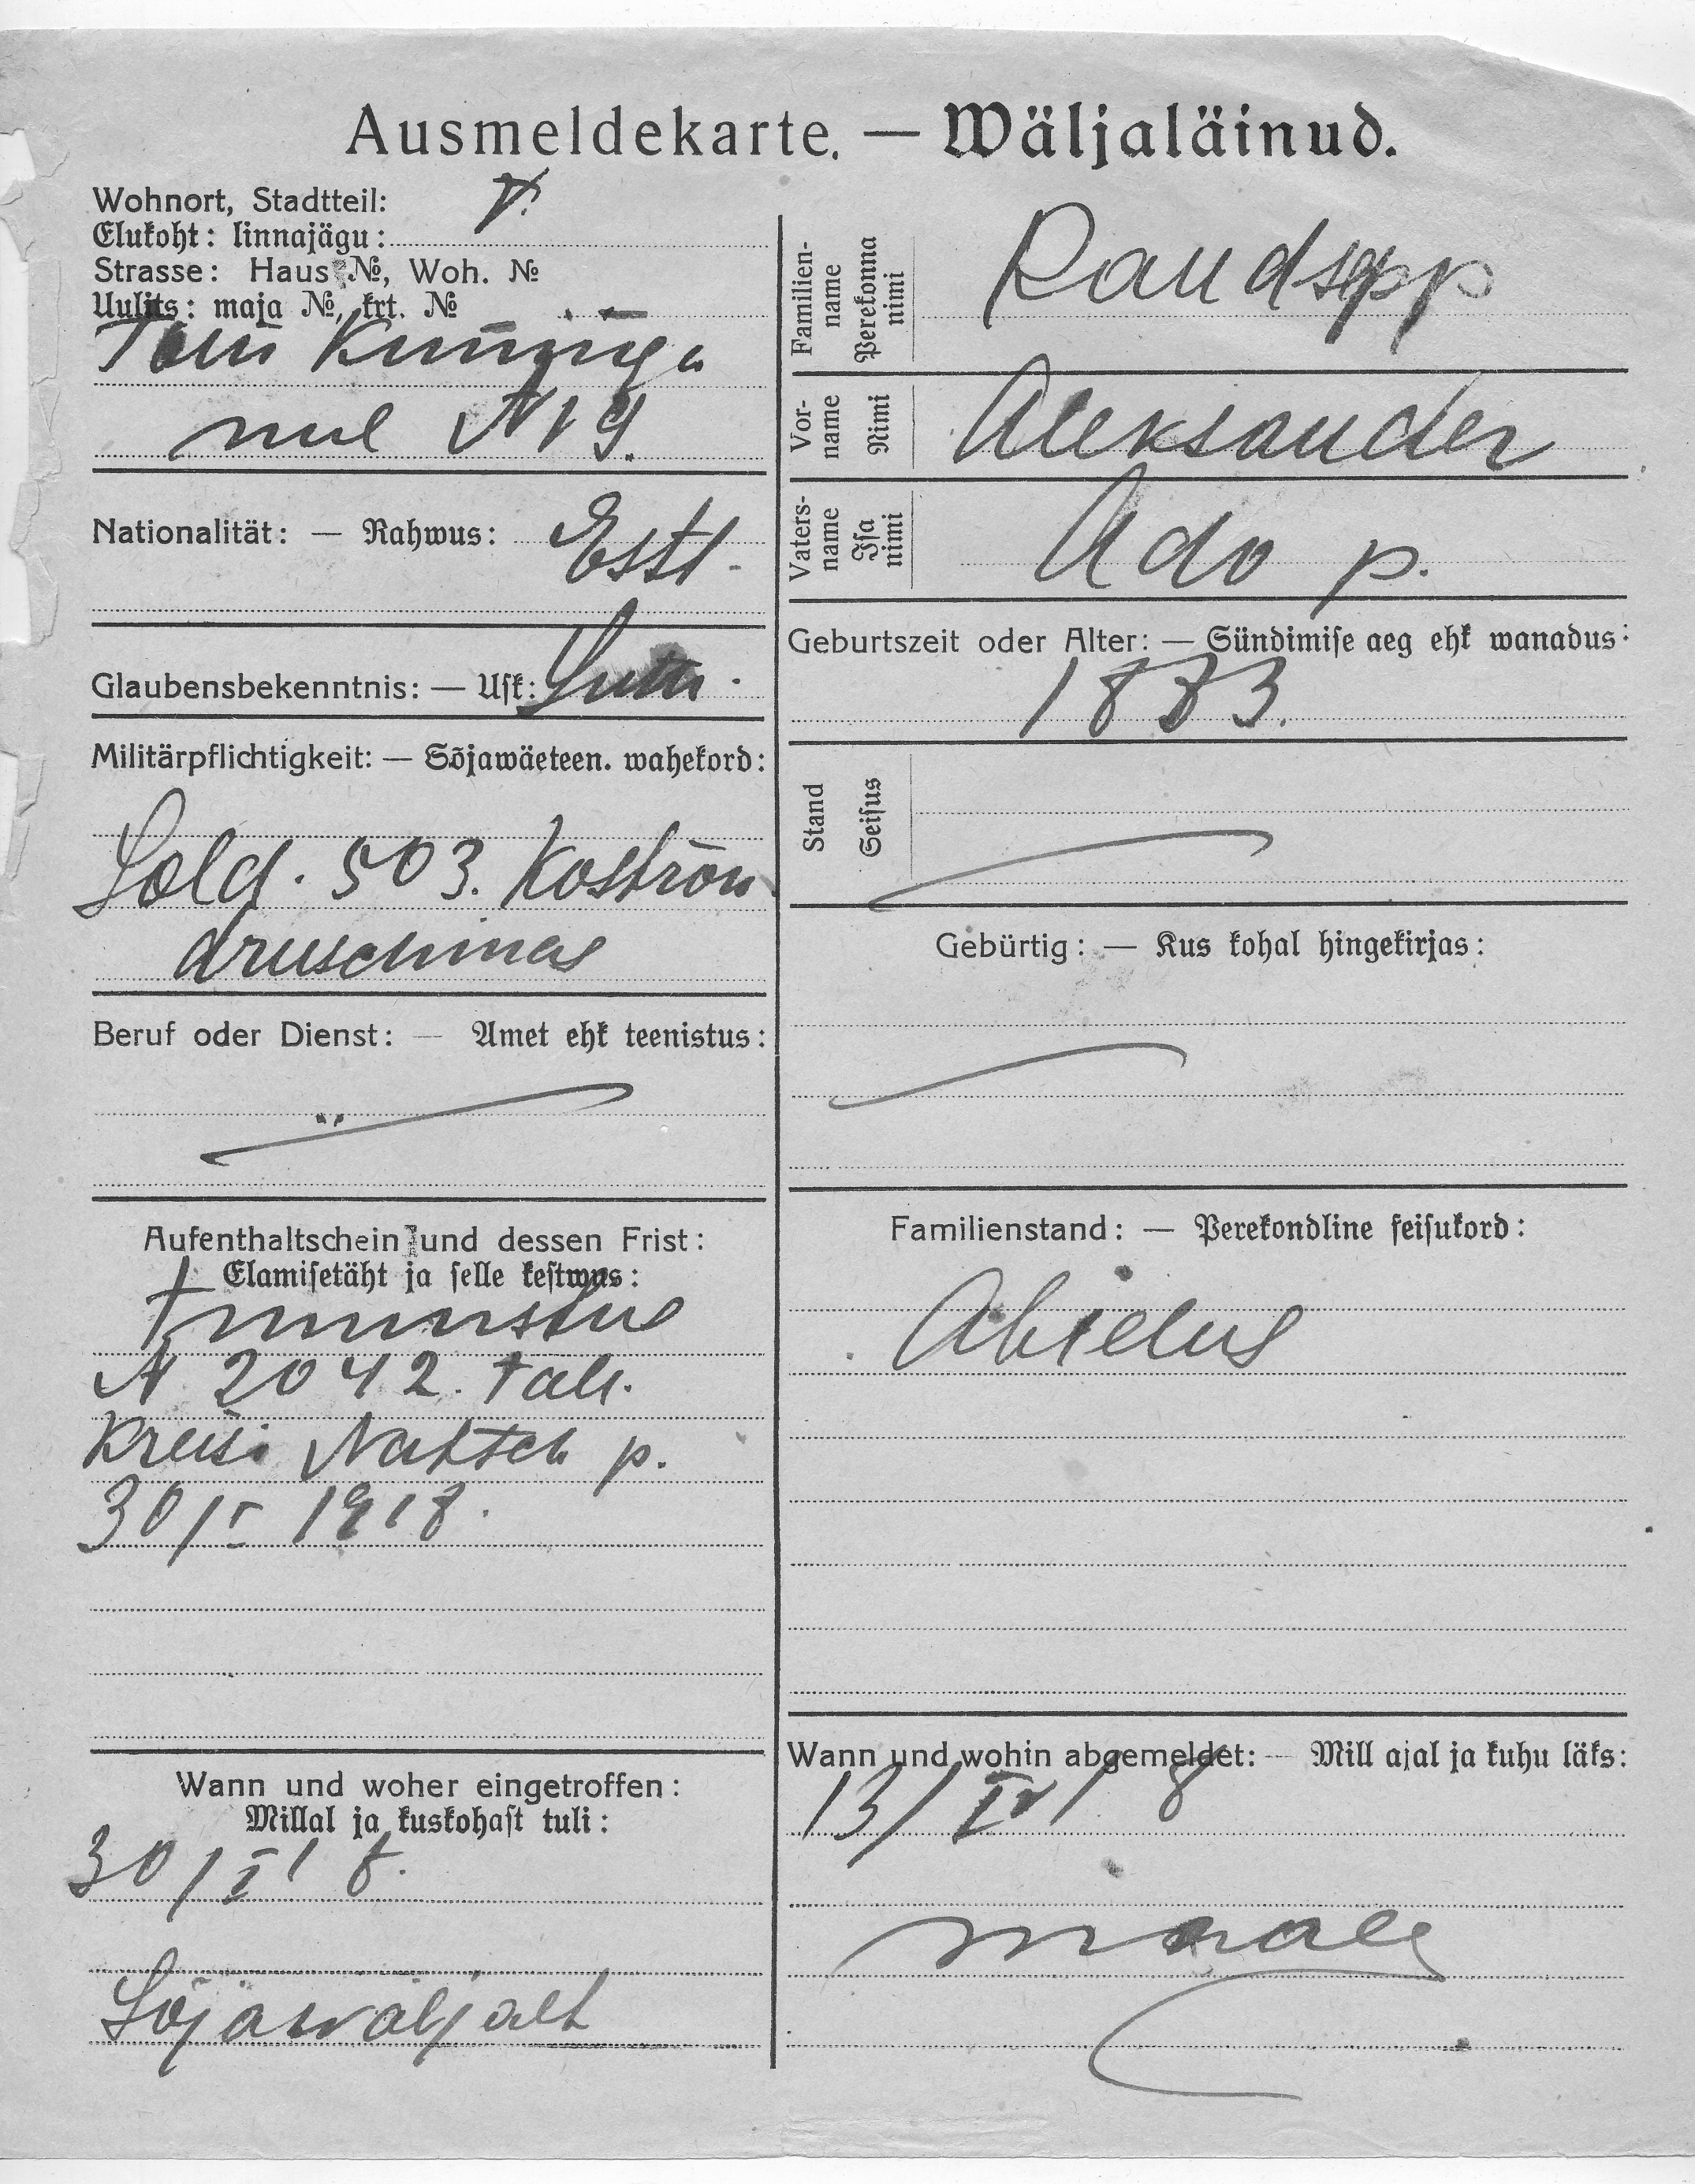 Ausmeldekarte. — Wäljaläinud.
Wohnort, Stadtteil:
Elukoht: linnajägu:
Strasse: Haus №, Woh. №
Uulits: maja №, krt. №
Kuninga
N 19.
Nationalität: — Rahwus: Estl.
Glaubensbekenntnis: — Usk: Luth.
Militärpflichtigkeit: — Sõjawäeteen. wahekord:
Sold. 503. Kostrom
druschinas
Beruf oder Dienst: — Amet ehk teenistus:
Aufenthaltschein und dessen Frist:
Elamisetäht ja selle kestwus:
tunnistus
N 2042. Tall.
Kreisi Natsch p.
30/I 1918.
Wann und woher eingetroffen:
Millal ja kuskohast tuli:
30/I 18.
Sõjawäljalt
Familien-
name
Perekonna
nimi
Raudsepp
Vor-
name
Nimi
Aleksander
Vaters-
name
Isa
nimi
Ado p.
Geburtszeit oder Alter: — Sündimise aeg ehk wanadus:
1883.
Stand
Seisus
Gebürtig: — Kus kohal hingekirjas:
Familienstand: — Perekondline seisukord:
Abielus
Wann und wohin abgemeldet: — Mill ajal ja kuhu läks:
13/IV 18
maale